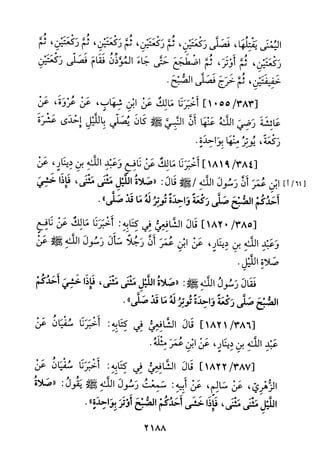 الْيُمْنَى يَفْتِلُهَا، فَصَلَّى رَكْعَتَيْنِ، ثُمَّ رَكْعَتَيْنِ، ثُمَّ رَكْعَتَيْنِ، ثُمَّ رَكْعَتَيْنِ، ثُمَّ
رَكْعَتَيْنِ، ثُمَّ أَوْتَرَ، ثُمَّ اضْطَجَعَ حَتَّى جَاءَ الْمُؤَذِّنُ فَقَامَ فَصَلَّى رَكْعَتَيْنِ
خَفِيفَتَيْنِ، ثُمَّ خَرَجَ فَصَلَّى الصُّبْحَ.
[١٠٥٥/٣٨٣] أَخْبَرَنَا مَالِكٌ عَنْ ابْنِ شِهَابٍ، عَنْ عُرْوَةَ، عَنْ
عَائِشَةَ رَضِيَ اللَّهُ عَنْهَا أَنَّ النَّبِيَّ ﷺ كَانَ يُصَلِّي بِاللَّيْلِ إِحْدَى عَشْرَةَ
رَكْعَةً، يُوتِرُ مِنْهَا بِوَاحِدَةٍ.
[١٨١٩/٣٨٤] أَخْبَرَنَا مَالِكٌ عَنْ نَافِعٍ وَعَبْدِ اللَّهِ بنِ دِينَارٍ، عَنْ
ابْنِ عُمَرَ أَنَّ رَسُولَ اللَّهِ / ﷺ قَالَ: «صَلاةُ اللَّيْلِ مَثْنَى مَثْنَى، فَإِذَا خَشِيَ [٦١/أ]
أَحَدُكُمُ الصُّبْحَ صَلَّى رَكْعَةً وَاحِدَةً تُوتِرُ لَهُ مَا قَدْ صَلَّى».
[١٨٢٠/٣٨٥] قَالَ الشَّافِعِيُّ فِي كِتَابِهِ: أَخْبَرَنَا مَالِكٌ عَنْ نَافِعٍ
وَعَبْدِ اللَّهِ بنِ دِينَارٍ، عَنْ ابْنِ عُمَرَ أَنَّ رَجُلاً سَأَلَ رَسُولَ اللَّهِ ﷺ عَنْ
صَلاةِ اللَّيْلِ.
فَقَالَ رَسُولُ اللَّهِ ﷺ: «صَلاةُ اللَّيْلِ مَثْنَى مَثْنَى، فَإِذَا خَشِيَ أَحَدُكُمْ
الصُّبْحَ صَلَّى رَكْعَةً وَاحِدَةً تُوتِرُ لَهُ مَا قَدْ صَلَّى».
[١٨٢١/٣٨٦] قَالَ الشَّافِعِيُّ فِي كِتَابِهِ: أَخْبَرَنَا سُفْيَانُ عَنْ
عَبْدِ اللَّهِ بنِ دِينَارٍ، عَنْ ابْنِ عُمَرَ مِثْلَهُ.
[١٨٢٢/٣٨٧] قَالَ الشَّافِعِيُّ فِي كِتَابِهِ: أَخْبَرَنَا سُفْيَانُ عَنْ
الزُّهْرِيِّ، عَنْ سَالِمٍ، عَنْ أَبِيهِ: سَمِعْتُ رَسُولَ اللَّهِ ﷺ يَقُولُ: «صَلاةُ
اللَّيْلِ مَثْنَى مَثْنَى، فَإِذَا خَشَى أَحَدُكُمْ الصُّبْحَ أَوْتَرَ بِوَاحِدَةٍ».
٢١٨٨